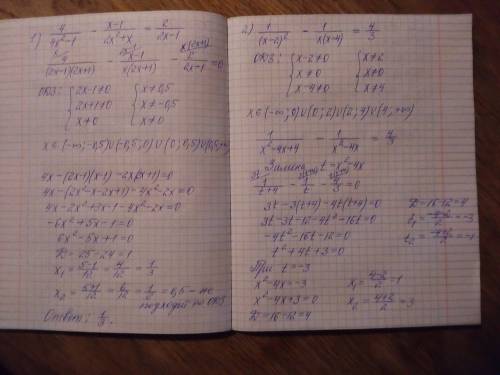 1) 4/(4x²-1) - (x-1)/(2x²+x) = 2/(2x-1)
4/((2x-1)(2x+1)) - (x-1)/(x(2x+1)) - 2/(2x-1) = 0
ОДЗ: { 2x-1≠0 { x≠0,5
2x+1≠0 x≠-0,5
x≠0 x≠0
x∈(-∞;-0,5)∪(-0,5;0)∪(0;0,5)∪(0,5;+∞)
4x-(2x-1)(x-1)-2x(2x+1)=0
4x-(2x²-x-2x+1)-4x²-2x=0
4x-2x²+3x-1-4x²-2x=0
-6x²+5x-1=0
6x²-5x+1=0
D=25-24=1
x₁=(5-1)/12=4/12=1/3
x₂=(5+1)/12=6/12=1/2=0,5 - не
подходит по ОДЗ
Ответ: 1/3.
2) 1/(x-2)² - 1/(x(x-4)) = 4/3
ОДЗ: { x-2≠0 { x≠2
x≠0 x≠0
x-4≠0 x≠4
x∈(-∞;0)∪(0;2)∪(2;4)∪(4;+∞)
1/(x²-4x+4) - 1/(x²-4x) = 4/3
Замена t=x²-4x
1/(t+4) - 1/t - 4/3 = 0
3t-3(t+4)-4t(t+4)=0
3t-3t-12-4t²-16t=0
-4t²-16t-12=0
t²+4t+3=0
D=16-12=4
t₁=(-4-2)/2=-3
t₂=(-4+2)/2=-1
При t=-3
x²-4x=-3
x²-4x+3=0
D=16-12=4
x₁=(4-2)/2=1
x₂=(4+2)/2=3